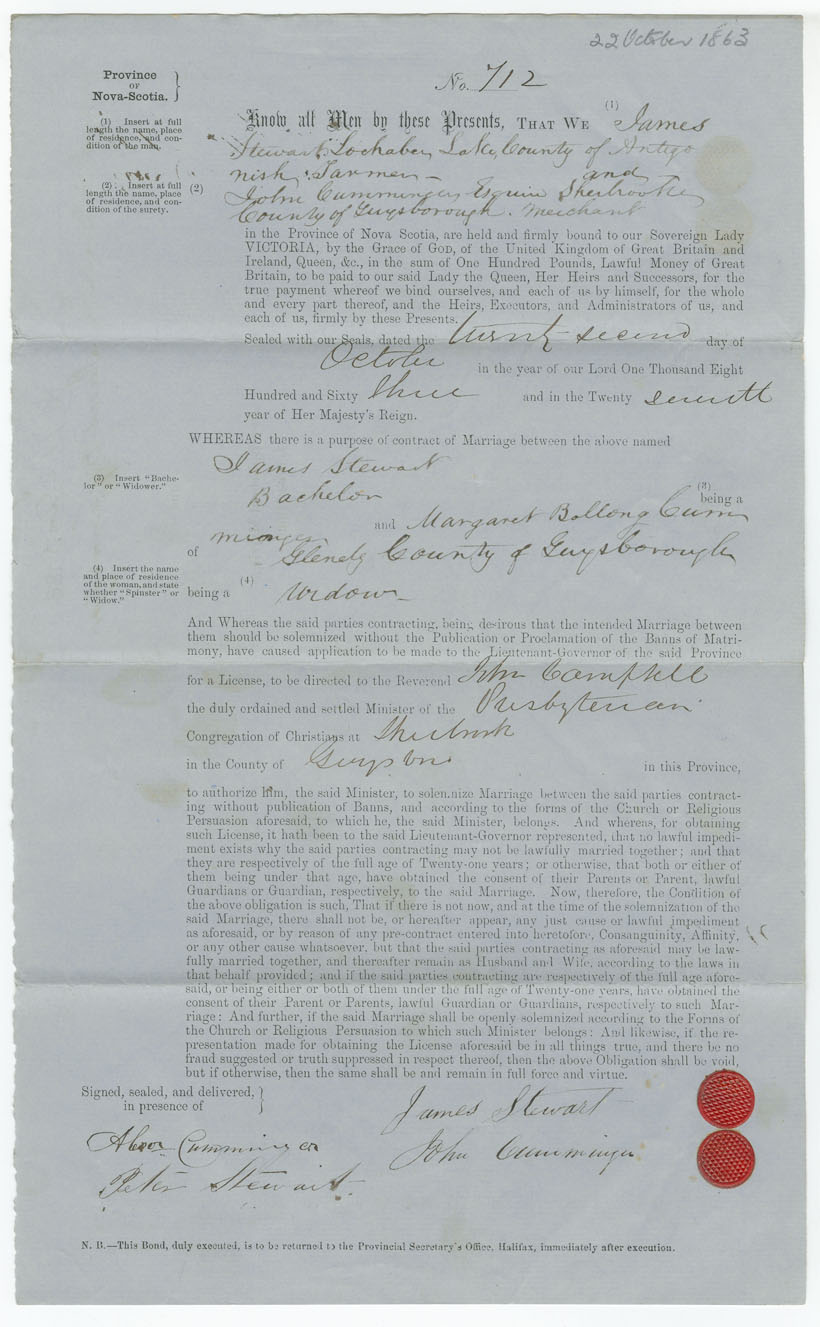 22 October 1863
Province
OF
Nova-Scotia.
No. 712
(1) Insert at full
length the name, place
of residence, and con-
dition of the man.
Know all Men by these Presents, THAT WE (1) James
Stewart, Lochaber Lake, County of Antigo
nish, Farmer and
(2) Insert at full
length the name, place
of residence, and con-
dition of the surety.
(2) John Cumminger Esquire Sherbrooke
County of Guysborough. Merchant
in the Province of Nova Scotia, are held and firmly bound to our Sovereign Lady
VICTORIA, by the Grace of GOD, of the United Kingdom of Great Britain and
Ireland, Queen, &c., in the sum of One Hundred Pounds, Lawful Money of Great
Britain, to be paid to our said Lady the Queen, Her Heirs and Successors, for the
true payment whereof we bind ourselves, and each of us by himself, for the whole
and every part thereof, and the Heirs, Executors, and Administrators of us, and
each of us, firmly by these Presents.
Sealed with our Seals, dated the twenty second day of
October in the year of our Lord One Thousand Eight
Hundred and Sixty three and in the Twenty seventh
year of Her Majesty's Reign.
WHEREAS there is a purpose of contract of Marriage between the above named
James Stewart
(3) Insert "Bache-
lor" or "Widower."
(3)
Bachelor being a
and Margaret Bollong Cum
minger
of Glenelg County of Guysborough
(4) Insert the name
and place of residence
of the woman, and state
whether "Spinster" or
"Widow."
(4)
being a Widow
And Whereas the said parties contracting, being desirous that the intended Marriage between
them should be solemnized without the Publication or Proclamation of the Banns of Matri-
mony, have caused application to be made to the Lieutenant-Governor of the said Province
for a License, to be directed to the Reverend John Campbell
the duly ordained and settled Minister of the Presbyterian
Congregation of Christians at Sherbrook
in the County of Guysboro in this Province,
to authorize him, the said Minister, to solemnize Marriage between the said parties contract-
ing without publication of Banns, and according to the forms of the Church or Religious
Persuasion aforesaid, to which he, the said Minister, belongs. And whereas, for obtaining
such License, it hath been to the said Lieutenant-Governor represented, that no lawful impedi-
ment exists why the said parties contracting may not be lawfully married together; and that
they are respectively of the full age of Twenty-one years; or otherwise, that both or either of
them being under that age, have obtained the consent of their Parents or Parent, lawful
Guardians or Guardian, respectively, to the said Marriage. Now, therefore, the Condition of
the above obligation is such, That if there is not now, and at the time of the solemnization of the
said Marriage, there shall not be, or hereafter appear, any just cause or lawful impediment
as aforesaid, or by reason of any pre-contract entered into heretofore, Consanguinity, Affinity,
or any other cause whatsoever, but that the said parties contracting as aforesaid may be law-
fully married together, and thereafter remain as Husband and Wife, according to the laws in
that behalf provided; and if the said parties contracting are respectively of the full age afore-
said, or being either or both of them under the full age of Twenty-one years, have obtained the
consent of their Parent or Parents, lawful Guardian or Guardians, respectively to such Mar-
riage: And further, if the said Marriage shall be openly solemnized according to the Forms of
the Church or Religious Persuasion to which such Minister belongs: And likewise, if the re-
presentation made for obtaining the License aforesaid be in all things true, and there be no
fraud suggested or truth suppressed in respect thereof, then the above Obligation shall be void,
but if otherwise, then the same shall be and remain in full force and virtue.
Signed, sealed, and delivered,
in presence of
James Stewart
Cumminger
John Cumminger
Peter Stewart
N. B.—This Bond, duly executed, is to be returned to the Provincial Secretary's Office, Halifax, immediately after execution.